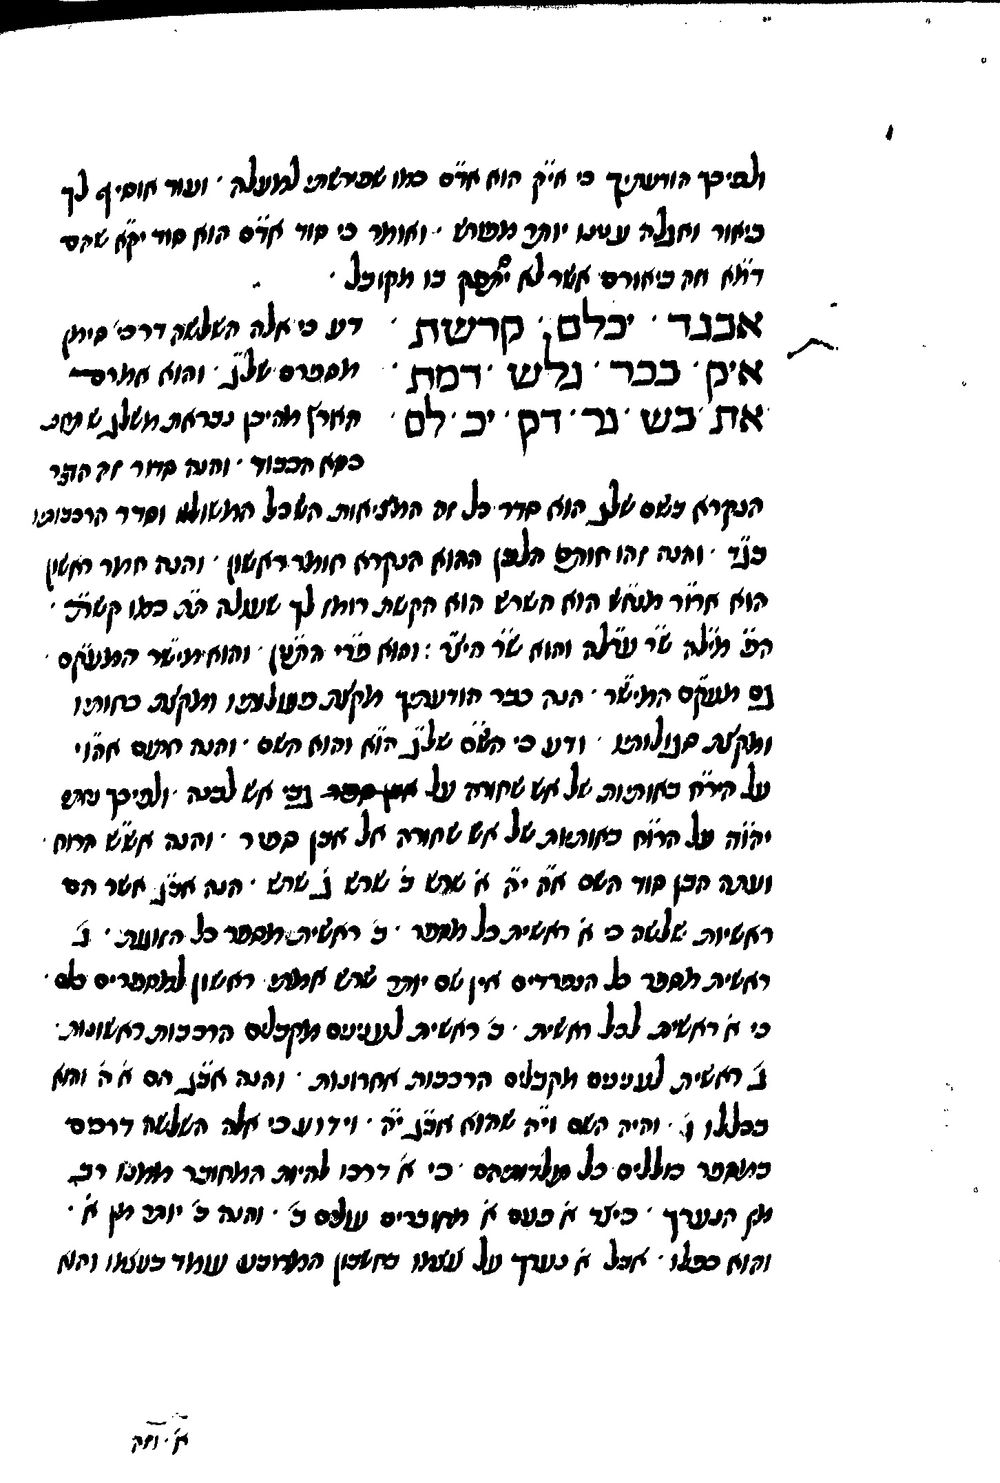 ולפיכך הודעתיך כי אי״ק הוא אד״ם כמו שפירשתי למעלה · ועוד אוסיף לך
ביאור ואגלה ענינו יותר מפורש · ואומר כי סוד אד״ם הוא סוד יק״א שהם
דמ״א וזה ביאורם אשר לא יתסק בו מקובל ·
אבגד · יכלם · קרשת · דע כי אלה השלשה דרכי׳ סימן
איק · בכר · גלש · דמת · מספרם של״ן · והוא אמרם
את · בש · גר · דק · יכ · לם · הארץ מהיכן נבראת משלג שתחת
כסא הכבוד · והנה סדור זה הדף
הנקרא בשם של״ג הוא סדר כל זה המציאות השכל המשולש וסדר הרכבותיו
כנ״ד · והנה זהו חותם הלבן ההוא הנקרא חומר ראשון · והנה חמר ראשון
הוא ארו״ר מנח״ש הוא השרש הוא הקשת רומז לך שעגלה ה״ת כמו קש״ת ·
המ״ מיל״ה ש״ר ער״לה והוא ש״ר היצ״ר : והוא פר״י הח״טן · והוא מיש״ר המעק״ם ·
גם מעק״ם המיש״ר · הנה כבר הודעתיך מקצת פעולותיו ומקצת כחותיו
ומקצת סגולותיו · ודע כי הש״ם של״ג הו״א והוא השם · והנה חתום אהו״י
על הירח באותיות של אש שחורה על גבי אש לבנה · ולפיכך נחתם
יהו״ה על הרו״ח באותיות של אש שחורה אל אבן ספיר · והנה אש״ש הרוח ·
ועתה הבן סוד השם א״ה י״ה א׳ שרש ב׳ שרש ג׳ שרש · הנה אב״ג אשר הם
ראשיות שלשה כי א׳ ראשית כל מספר · ב׳ ראשית מספר כל הזוגות · ג׳
ראשית מספר כל הנפרדים אין שם יותר שרש אמתי ראשון למספרים כלם ·
כי א׳ ראשית לכל ראשית · ב׳ ראשית לענינים מקבלים הרכבות ראשונות ·
ג׳ ראשית לענינים מקבלים הרכבות אחרונות · והנה אב״ג הם א׳ ה׳ והוא
בכללו ו׳ · והיה השם וי״ה שהוא אב״ג י״ה · וידוע כי אלה השלשה דרכים
במספר כוללים כל תולדותיהם · כי א׳ דרכו להיות המחובר ממנו רב
מן הנערך · כיצד א׳ פעם א׳ מחוברים עולים ב׳ · והנה ב׳ יותר מן א׳ ·
והוא כפלו · אבל א׳ נערך על עצמו בחשבון המרובע עומד בעצמו והוא
א׳ · וזה